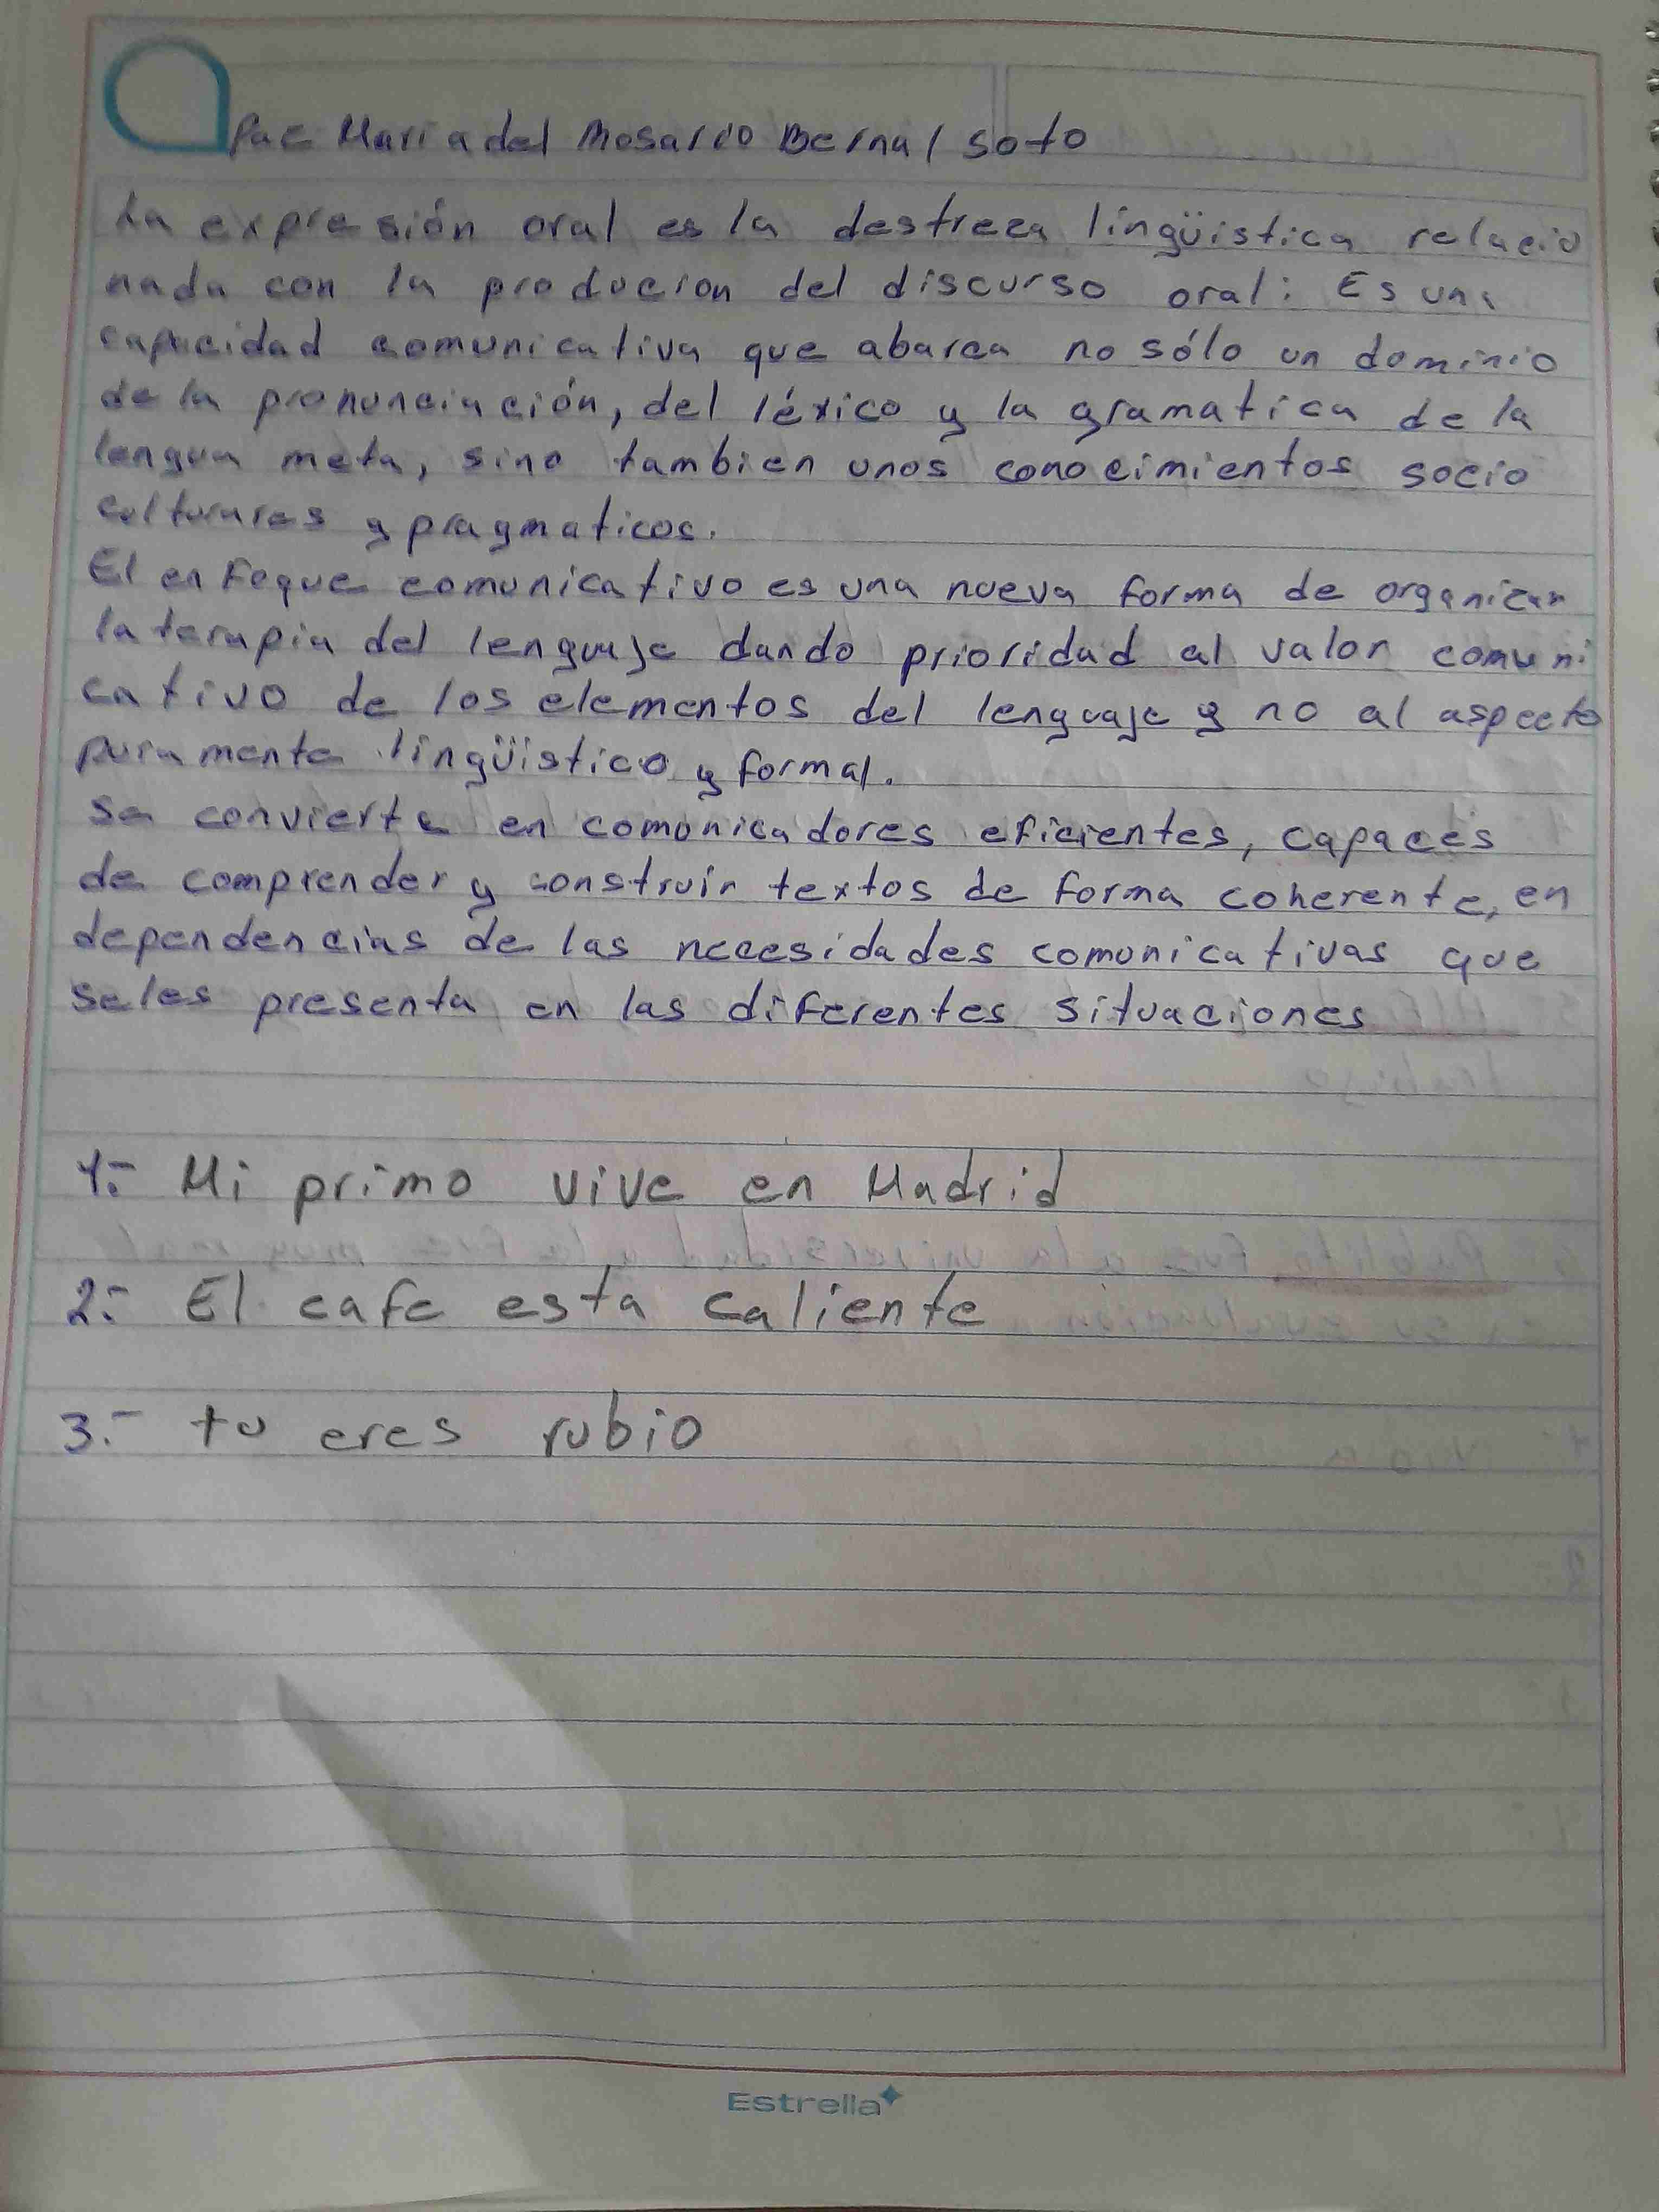 Paz Maria del Rosario Bernal Soto
La expresión oral es la destreza lingüistica relacio
nada con la producion del discurso oral: Es una
capacidad comunicativa que abarca no sólo un dominio
de la pronunciación, del léxico y la gramatica de la
lengua meta, sino tambien unos conocimientos socio
culturares y pragmaticos.
El enfoque comunicativo es una nueva forma de organizar
la terapia del lenguaje dando prioridad al valor comuni
cativo de los elementos del lenguaje y no al aspecto
puramente lingüistico y formal.
Se convierte en comunicadores eficientes, capaces
de comprender y construir textos de forma coherente, en
dependencias de las necesidades comunicativas que
seles presenta en las diferentes situaciones
1.- Mi primo vive en Madrid
2.- El cafe esta caliente
3.- tu eres rubio
Estrella